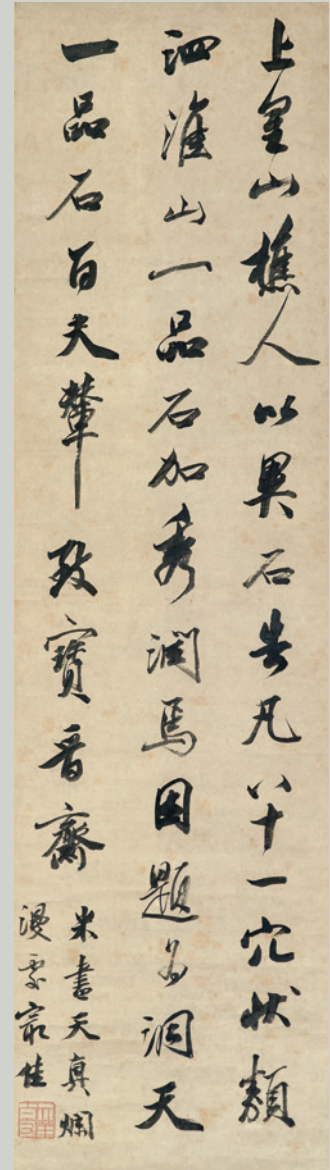 上皇山樵人以異石告凡八十一穴狀類
泗淮山一品石加秀潤焉因題為洞天
一品石百夫輦致寶晉齋
米書天真爛
漫處最佳